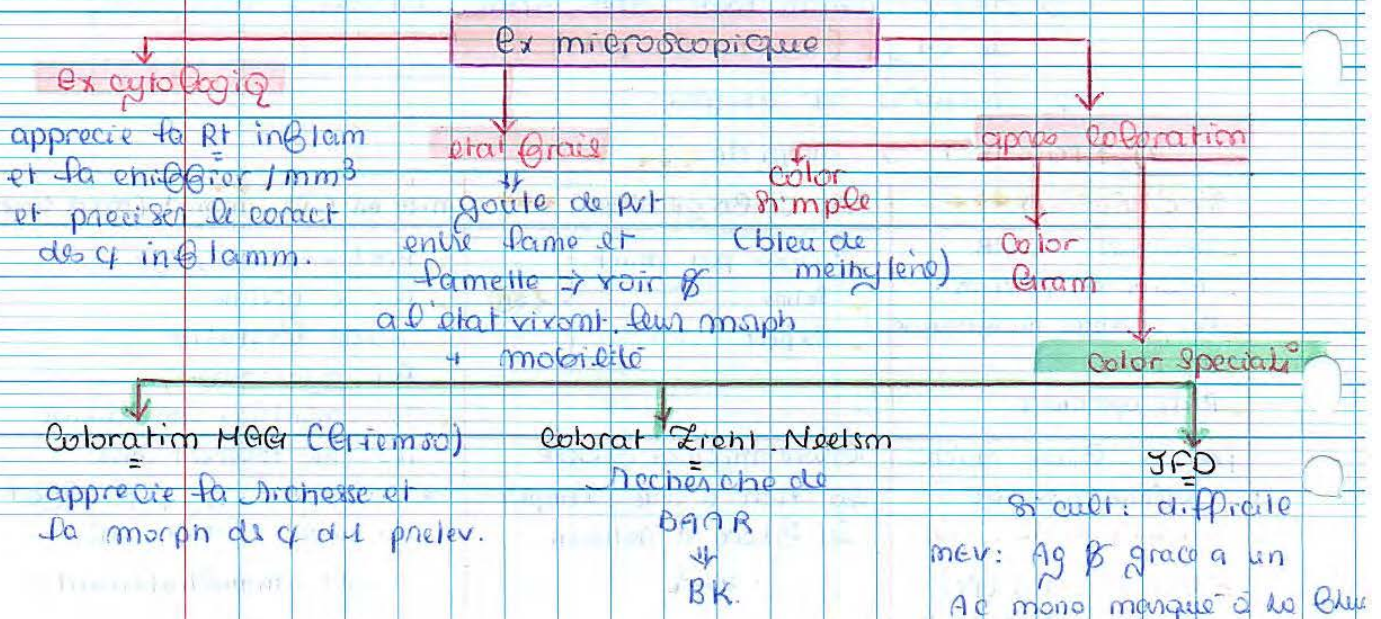 ex microscopique
ex cytologiQ
apprecie la Rt inflam
et la chiffrer / mm³
et preciser le caract
des ¢ inflamm.
etat frais
⇓
goute de pvt
entre lame et
lamelle ⇒ voir β
a l'etat vivant. leur morph
+ mobilité
apres coloration
color
simple
(bleu de
methylene)
Color
Gram
Color Special°
Coloration MGG (Giemsa)
apprecie la richesse et
la morph ds ¢ du prelev.
Colorat Ziehl. Neelsen
recherche de
BAAR
⇓
BK.
IFD
si cult: difficile
mEV: Ag β grace a un
Ac mono marqué à la fluo